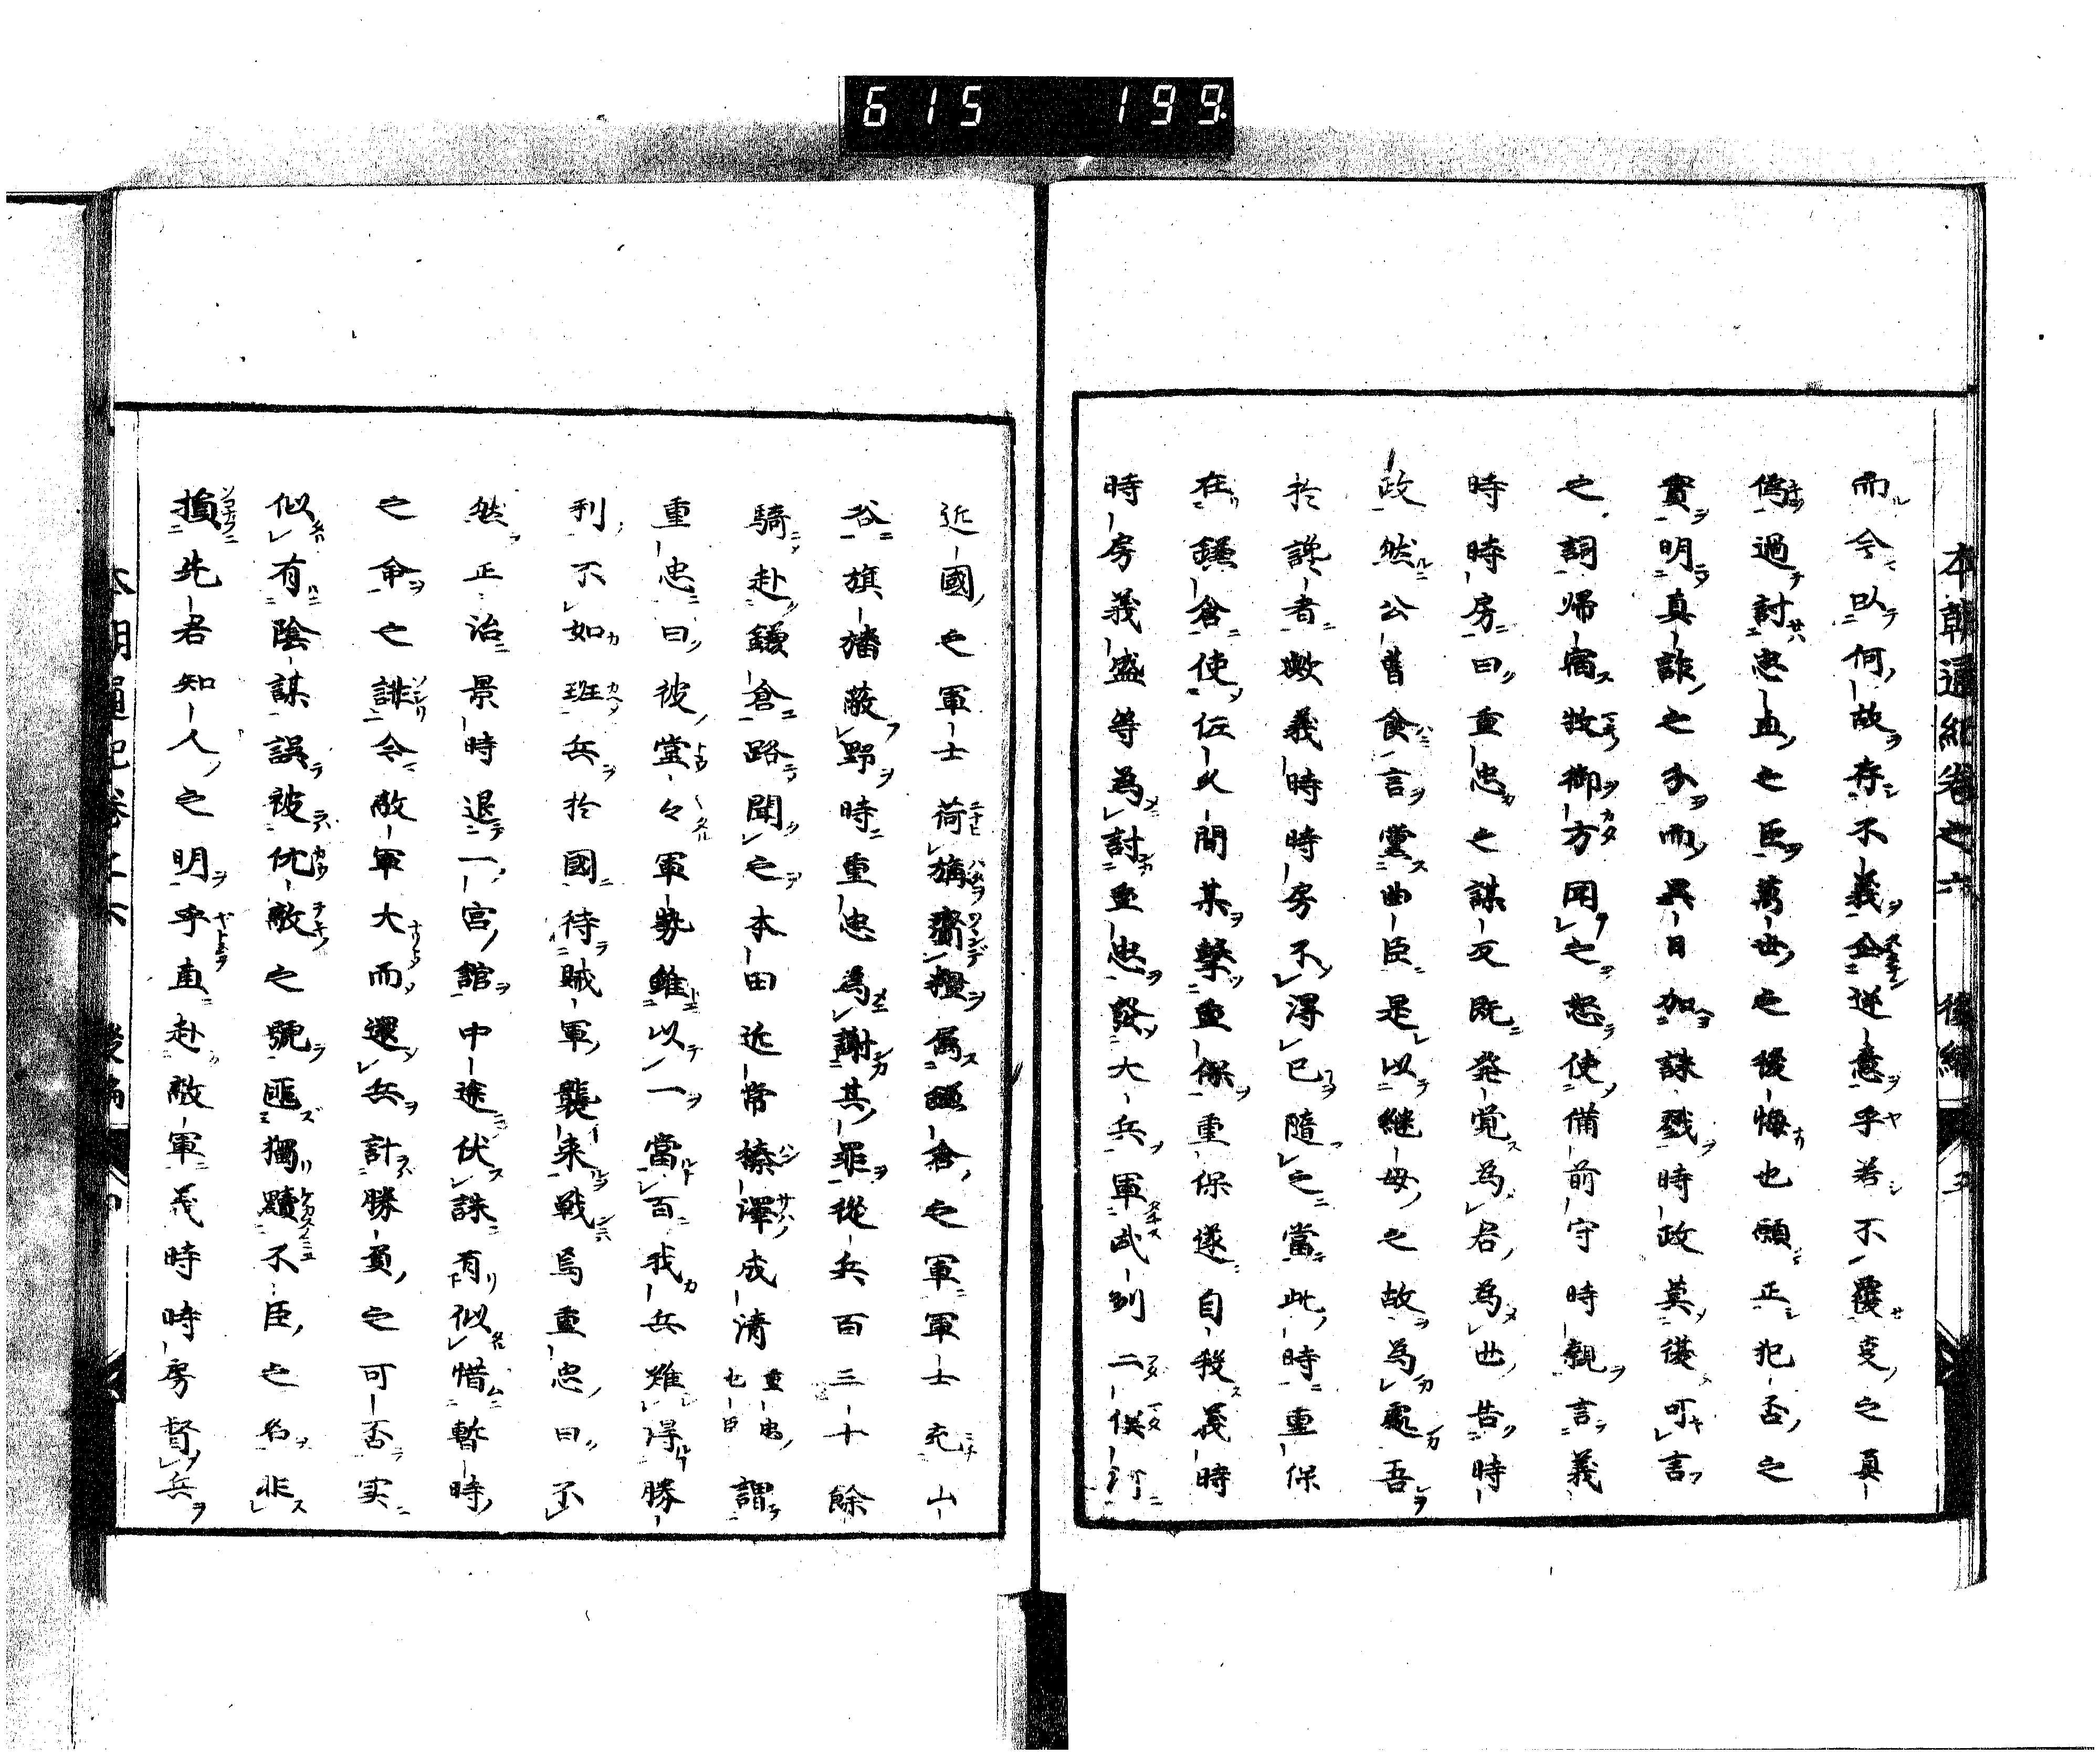 615 199.
本朝通紀卷之六 後編 五
而今以何故存不義企逆意乎若不覆更之真
偽過討忠直之臣萬世之後悔也願正犯否之
實明真詐之分而異日加誅戮時政莫後可言
之詞帰宿牧御方聞之怒使備前守時親言義
時時房曰重忠之謀反既発覚為君為世告時
政然公曽食言黨曲臣是以継母之故為處吾
於讒者歟義時時房不得已隨之當此時重保
在鎌倉使佐久間某撃重保重保遂自殺義時
時房義盛等為討重忠發大兵軍武到二俣河
近國之軍士荷旗齎糧属鎌倉之軍軍士充山
谷旗旛蔽野時重忠為謝其罪從兵百三十餘
騎赴鎌倉路聞之本田近常榛澤成清 重忠七臣 謂
重忠曰彼堂々軍勢雖以一當百我兵難得勝
利不如班兵於國待賊軍襲来戦焉重忠曰不
然正治景時退一宮館中途伏誅有似惜暫時
之命之誹今敵軍大而還兵計勝負之可否実
似有陰謀誤被仇敵之號匪獨黷不臣之名非
損先君知人之明乎直赴敵軍義時時房督兵
本朝通紀卷之六 後編